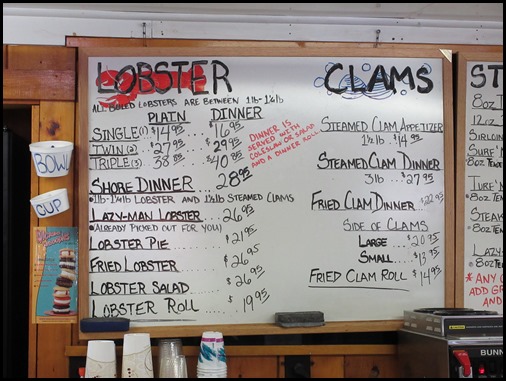 LOBSTER
ALL BOILED LOBSTERS ARE BETWEEN 1lb-1¼lb
PLAIN DINNER
SINGLE(1) $14.95 $16.95
TWIN (2) $27.95 $29.95
TRIPLE(3) 38.05 $40.85
DINNER IS
SERVED WITH
COLESLAW OR SALAD
AND A DINNER ROLL
SHORE DINNER.... 28.95
1lb-1¼lb LOBSTER AND 1½lb STEAMED CLAMS
LAZY-MAN LOBSTER ... 26.95
(ALREADY PICKED OUT FOR YOU)
LOBSTER PIE ..... $21.95
FRIED LOBSTER .... $26.95
LOBSTER SALAD .... $26.95
LOBSTER ROLL .... $19.95
CLAMS
STEAMED CLAM APPETIZER
1½ lb $14.95
STEAMED CLAM DINNER
3lb ..... $27.95
FRIED CLAM DINNER $22.95
SIDE OF CLAMS
LARGE .... $20.95
SMALL .... $13.95
FRIED CLAM ROLL $14.95
ST
8oz T
12oz
SIRLOIN
SURF 'N
8oz TENDE
TURF 'N
STEAK
8oz TE
LAZY
8oz TENDE
*ANY
ADD GR
AND
BOWL
CUP
BUNN